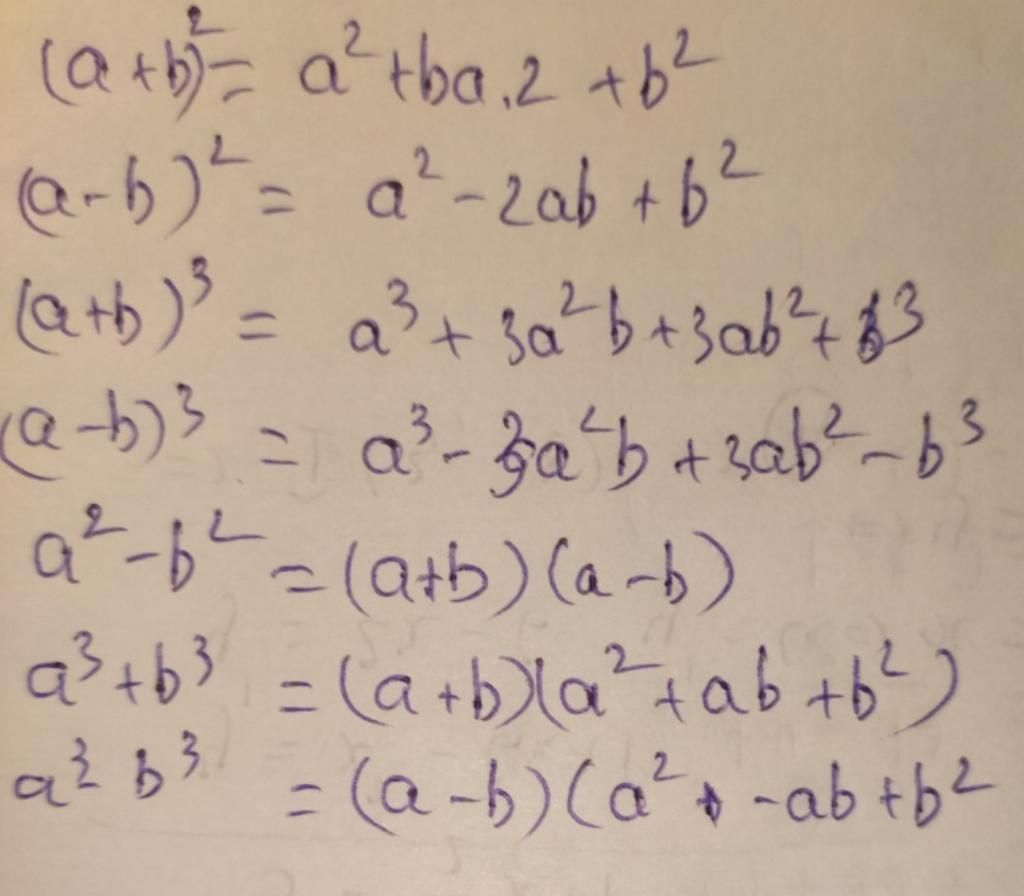 (a+b)² = a² + ba.2 + b²
(a-b)² = a² - 2ab + b²
(a+b)³ = a³ + 3a²b + 3ab² + b³
(a-b)³ = a³ - 3a²b + 3ab² - b³
a² - b² = (a+b)(a-b)
a³ + b³ = (a+b)(a² + ab + b²)
a³- b³ = (a-b)(a² - ab + b²